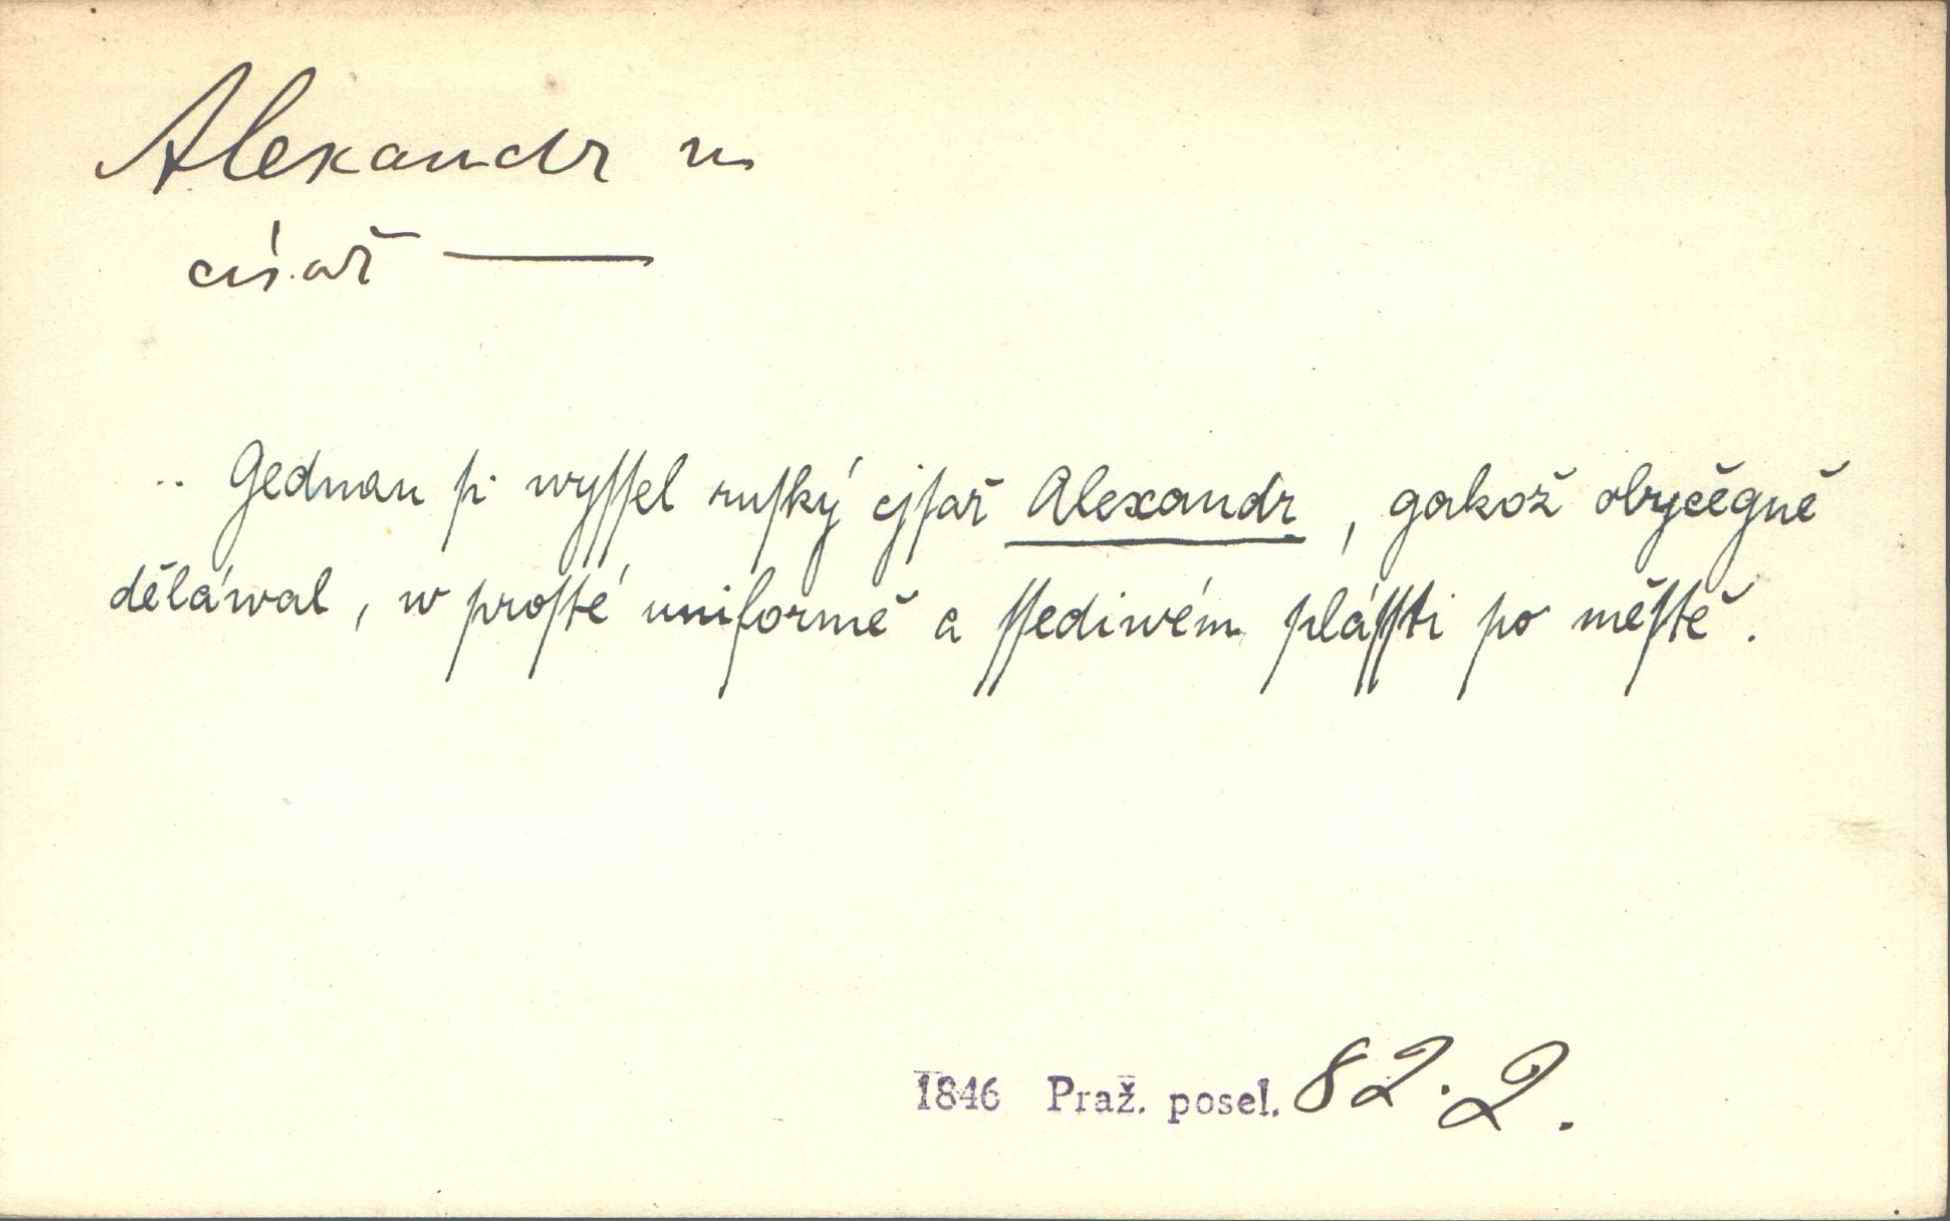 Alexandr m
císař —
.. Gednau ſi wyſſel ruſký cjſař Alexandr, gakož obyčegně
děláwal, w proſté uniformě a ſſediwém pláſſti po měſtě.
1846 Praž. posel. 82. 2.